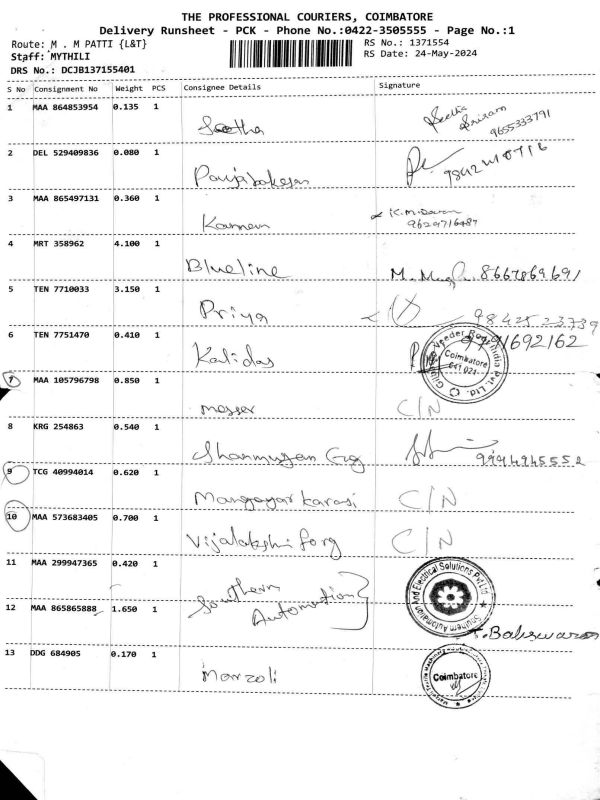 THE PROFESSIONAL COURIERS, COIMBATORE
Delivery Runsheet - PCK - Phone No.:0422-3505555 - Page No.:1
Route: M . M PATTI {L&T} RS No.: 1371554
Staff: MYTHILI RS Date: 24-May-2024
DRS No.: DCJB137155401
S No Consignment No Weight PCS Consignee Details Signature
1 MAA 864853954 0.135 1 Seetha Seetha Sriram 9655333791
2 DEL 529409836 0.080 1
3 MAA 865497131 0.360 1 9629716487
4 MRT 358962 4.100 1 Blueline M. 8667869691
5 TEN 7710033 3.150 1 Priya 98425 23739
6 TEN 7751470 0.410 1 Kalidas 9791692162
Coimbatore
641 021
7 MAA 105796798 0.850 1 messer C/N
8 KRG 254863 0.540 1 9994945552
9 TCG 40994014 0.620 1 Mangayarkarasi C/N
10 MAA 573683405 0.700 1 C/N
11 MAA 299947365 0.420 1 Southern
12 MAA 865865888 1.650 1 Automation
Southern Automation And Electrical Solutions Pvt Ltd
13 DDG 684905 0.170 1 Marzoli
Coimbatore